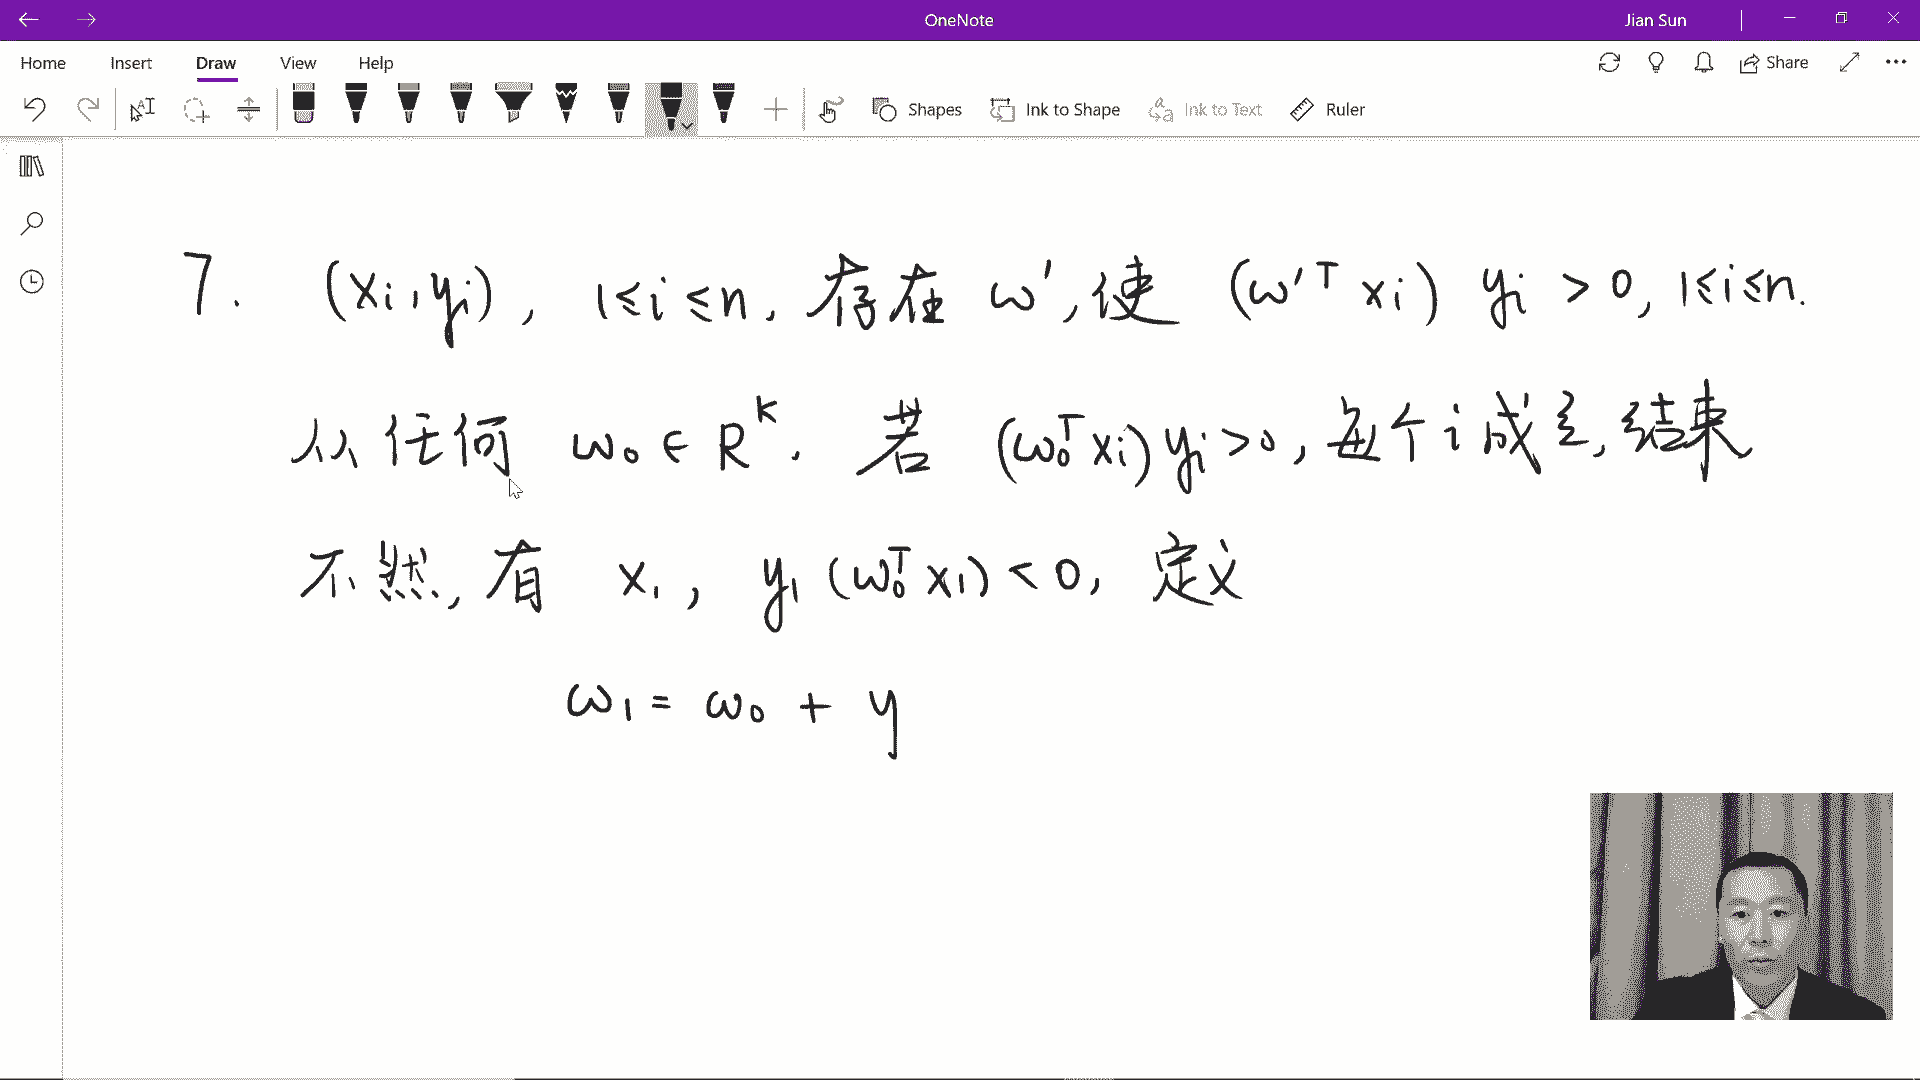 OneNote
Jian Sun
Home Insert Draw View Help
Share
Shapes Ink to Shape Ink to Text Ruler
7. (xi, yi), 1≤i≤n, 存在 ω', 使 (ω'ᵀ xi) yi > 0, 1≤i≤n.
从任何 ω₀ ∈ Rᴷ. 若 (ω₀ᵀ xi) yi > 0, 每个 i 成立, 结束
不然, 有 x₁, y₁ (ω₀ᵀ x₁) < 0, 定义
ω₁ = ω₀ + y